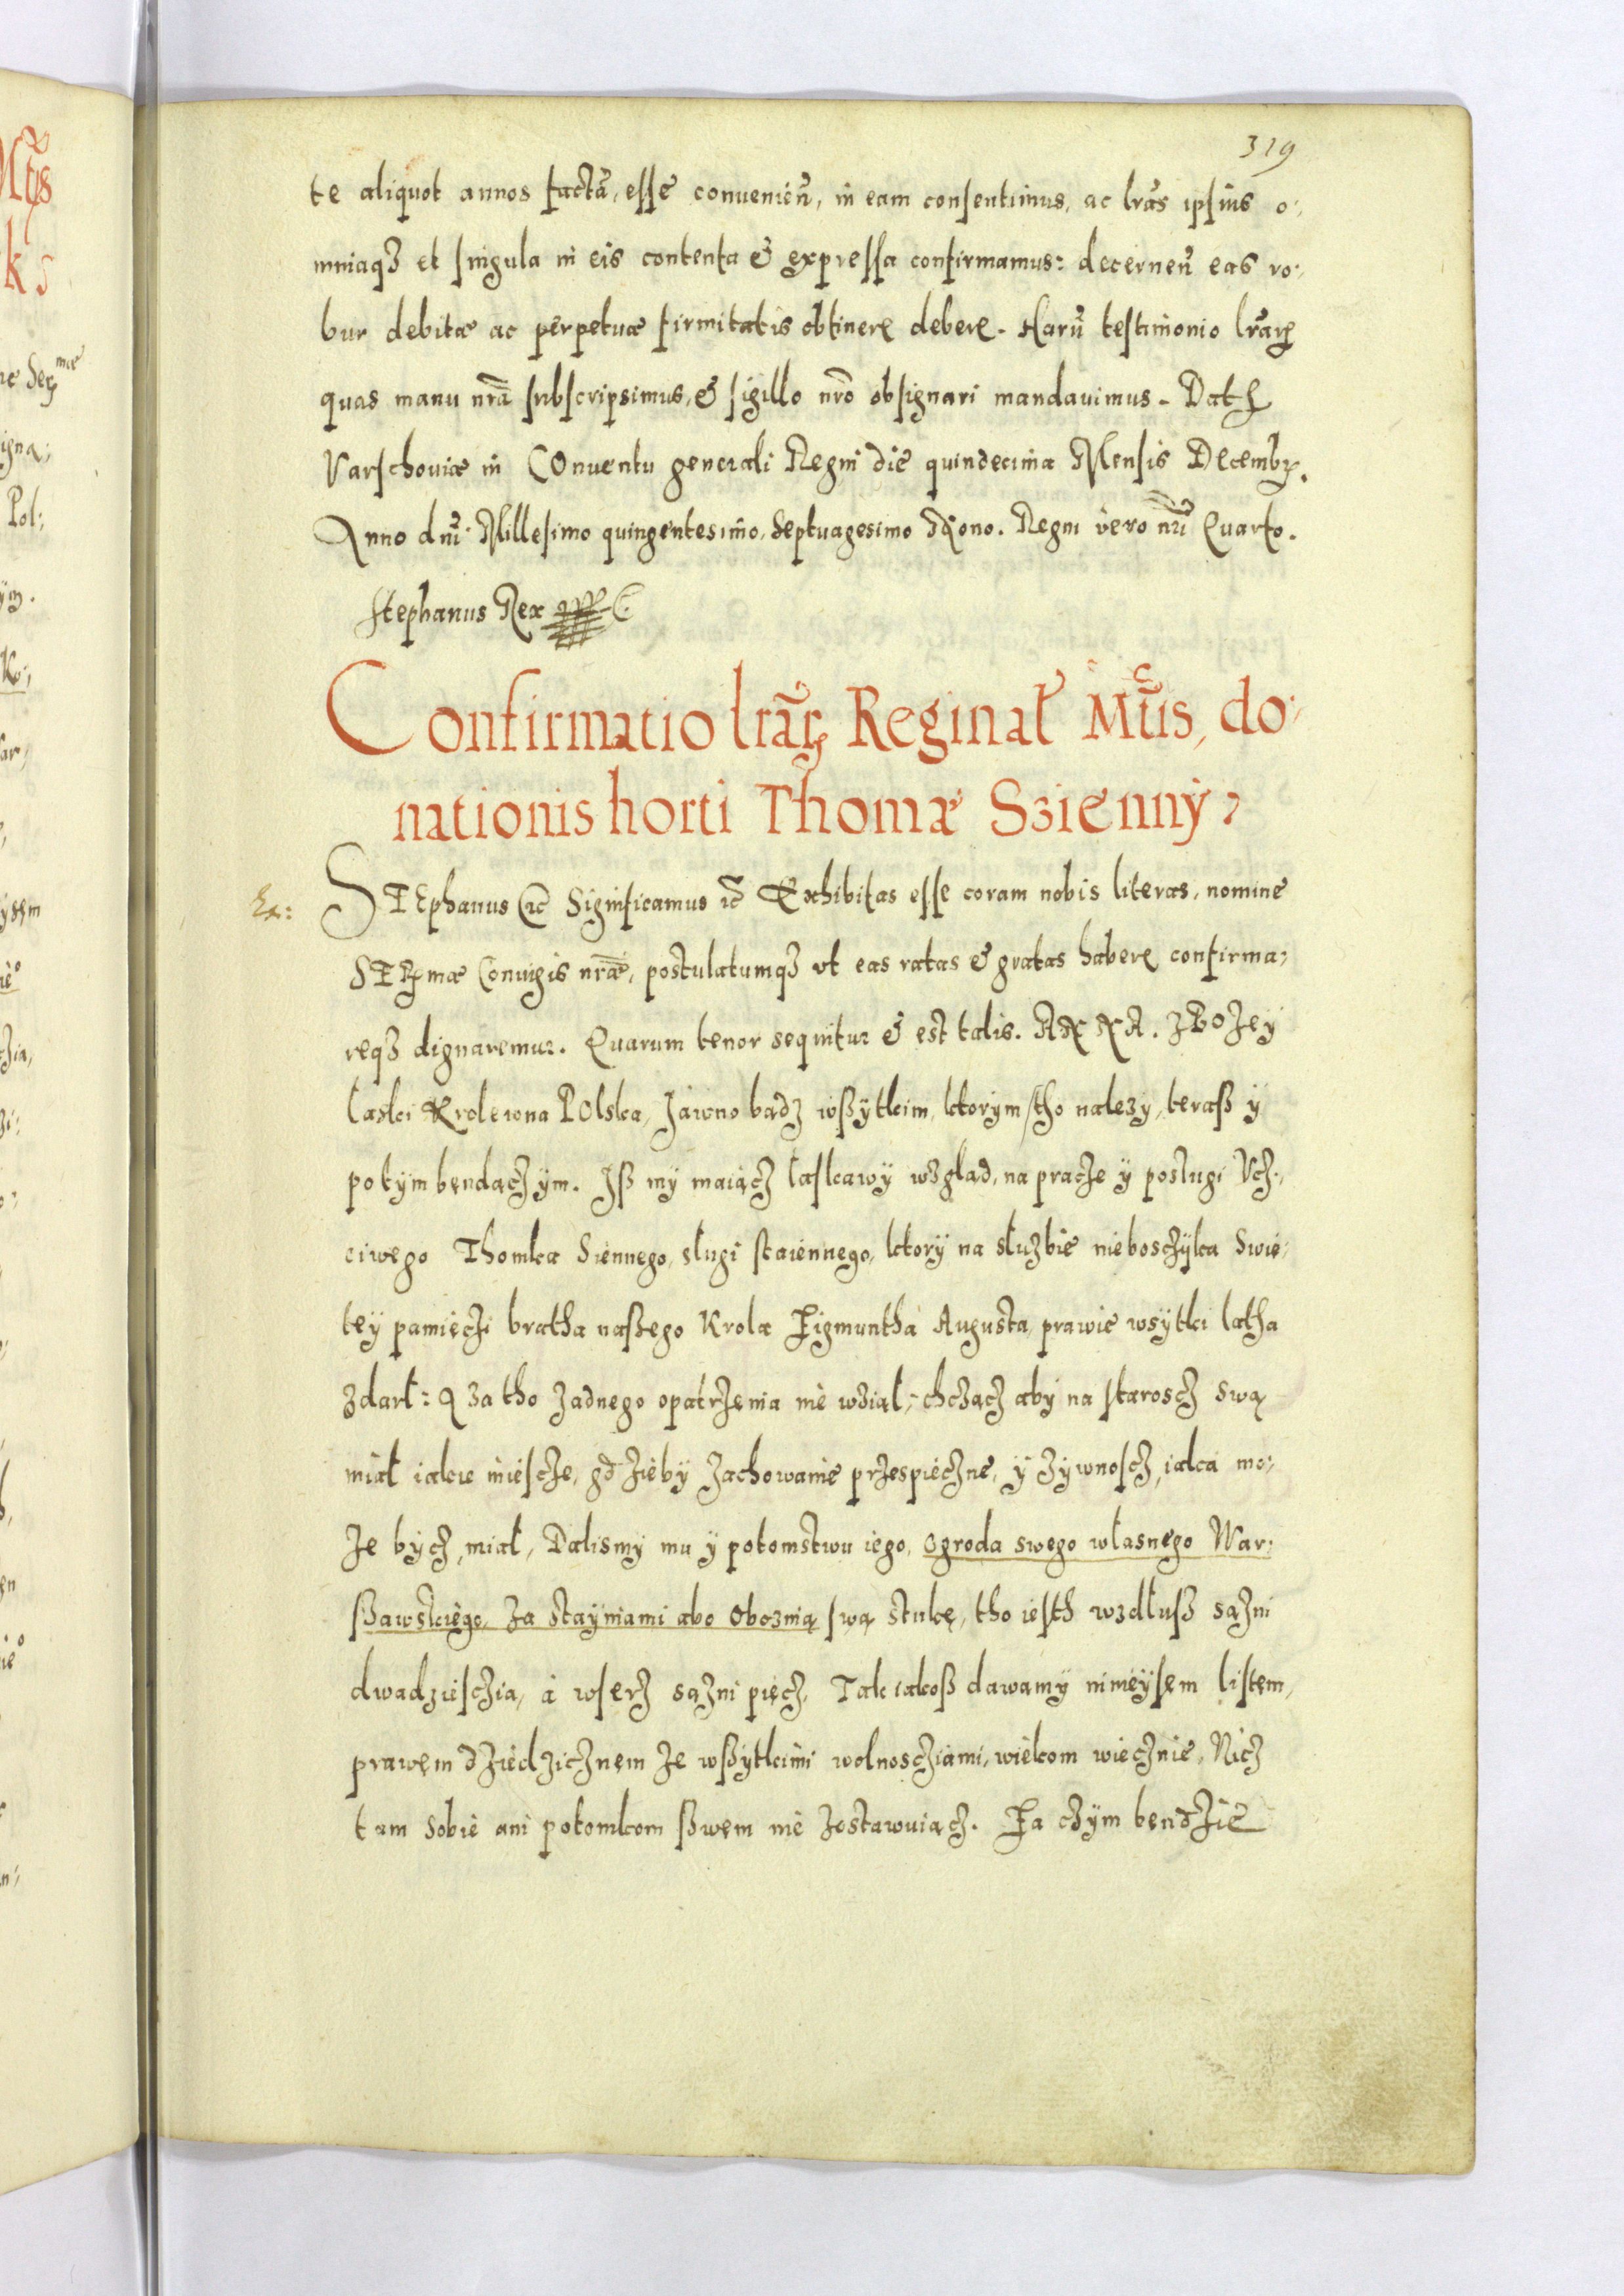 319
te aliquot annos factã, esse conuenieñ, in eam consentimus, ac lrãs ipsius o:
mniaqȝ et singula in eis contenta & expressa confirmamus: decerneñ eas ro:
bur debitæ ac perpetuæ firmitatis obtinere debere. Harũ testimonio lrãrꝝ
quas manu nrã subscripsimus, & sigillo nrõ obsignari mandauimus. Datꝝ
Varschouiæ in COnuentu generali Regni die quindecima Mensis Decembꝝ.
Anno dnĩ Millesimo quingentesimo, septuagesimo Nono. Regni vero nrĩ Quarto.
Stephanus Rex
Confirmatio lrãrꝝ Reginał Mt̃is, do:
nationis horti Thomæ Szienny,
STEphanus &c Significamus &c Exhibitas esse coram nobis literas, nomine
SERꝝmæ Coniugis nræ̃, postulatumqȝ vt eas ratas & gratas habere confirma:
reqȝ dignaremur. Quarum tenor sequitur & est talis. ANNA. Z BOZey
Łaski Krolewna POlska, Jawno bądz wßÿtkim, ktorÿm tho nalezy, teraß ÿ
potÿm bendączÿm. Iß mÿ maiącz łaskawÿ wzgląd, na pracze ÿ posługi Vcz:
ciwego Thomka Siennego, sługi staiennego, ktorÿ na słuzbie nieboszczÿka Swie:
teÿ pamięczi bratha naßego Krola Zigmuntha Augusta, prawie wsÿtki latha
zdarł: A za tho zadnego opatrzenia nie wziął, chcząc abÿ na staroscz swą
miał iakie miescze, gdzieby zachowanie przespieczne, ÿ zÿwnoscz, iaka mo:
ze bÿcz, miał, Dalismÿ mu ÿ potomstwu iego, ogroda swego własnego War:
ßawskiego, za stayniami abo Oboznią swą stukę, tho iesth wzdłuß sązni
dwadziesczia, á wserz sązni piącz, Tak iakoß dawamÿ ninieÿsem listem,
prawem dziedzicznem ze wßÿtkimi wolnosciami, wiekom wiecznie, Nicz
tam sobie ani potomkom ßwem nie zostawuiącz. Za czÿm bendzie